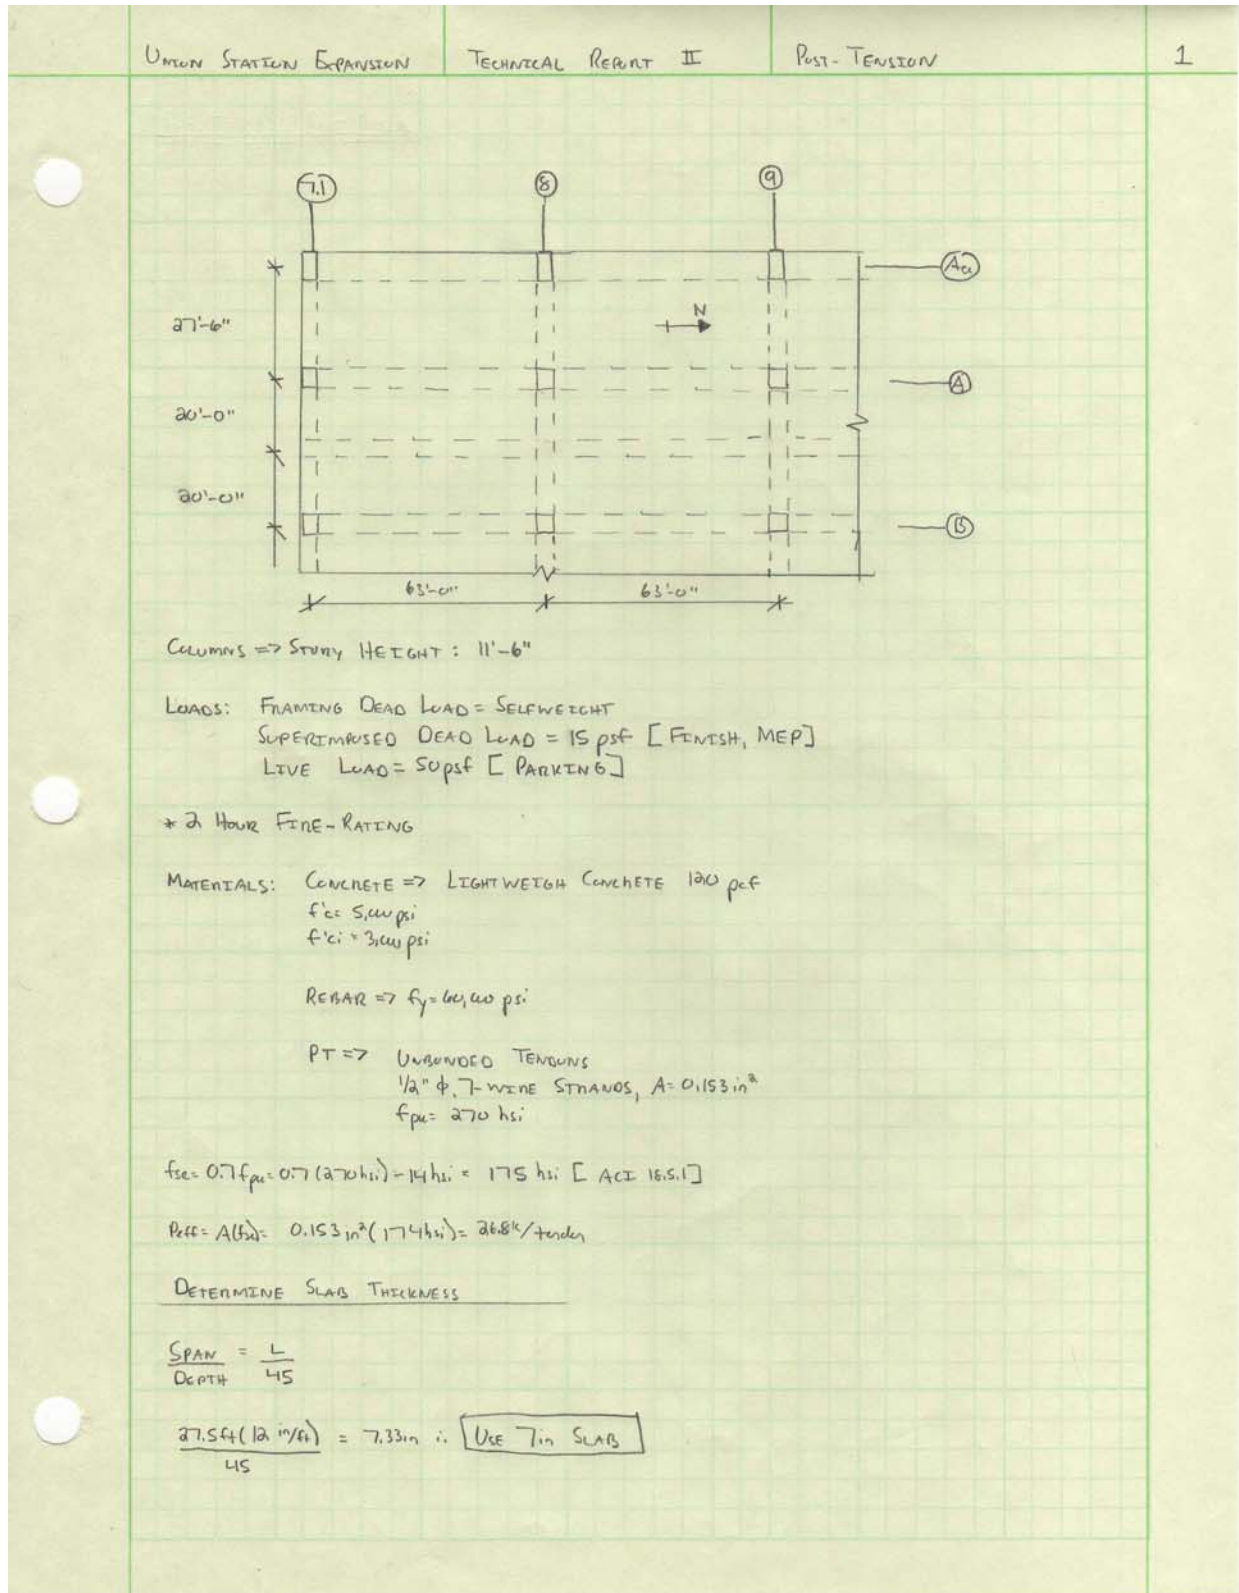 UNION STATION EXPANSION TECHNICAL REPORT II POST-TENSION 1
7.1 8 9
Aa
N
27'-6"
A
20'-0"
20'-0"
B
63'-0" 63'-0"
COLUMNS => STORY HEIGHT: 11'-6"
LOADS: FRAMING DEAD LOAD = SELFWEIGHT
SUPERIMPOSED DEAD LOAD = 15 psf [FINISH, MEP]
LIVE LOAD = 50psf [PARKING]
* 2 HOUR FIRE-RATING
MATERIALS: CONCRETE => LIGHTWEIGH CONCRETE 120 pcf
f'c= 5,000 psi
f'ci = 3,000 psi
REBAR => fy= 60,000 psi
PT => UNBONDED TENDONS
1/2" φ, 7-WIRE STRANDS, A= 0.153 in²
fpu= 270 ksi
fse= 0.7 fpu = 0.7 (270 ksi) - 14 ksi = 175 ksi [ACI 18.5.1]
Peff= A(fse)= 0.153 in² (174 ksi) = 26.8k/tendon
DETERMINE SLAB THICKNESS
SPAN = L
DEPTH 45
27.5ft(12 in/ft) = 7.33in ∴ USE 7in SLAB
45